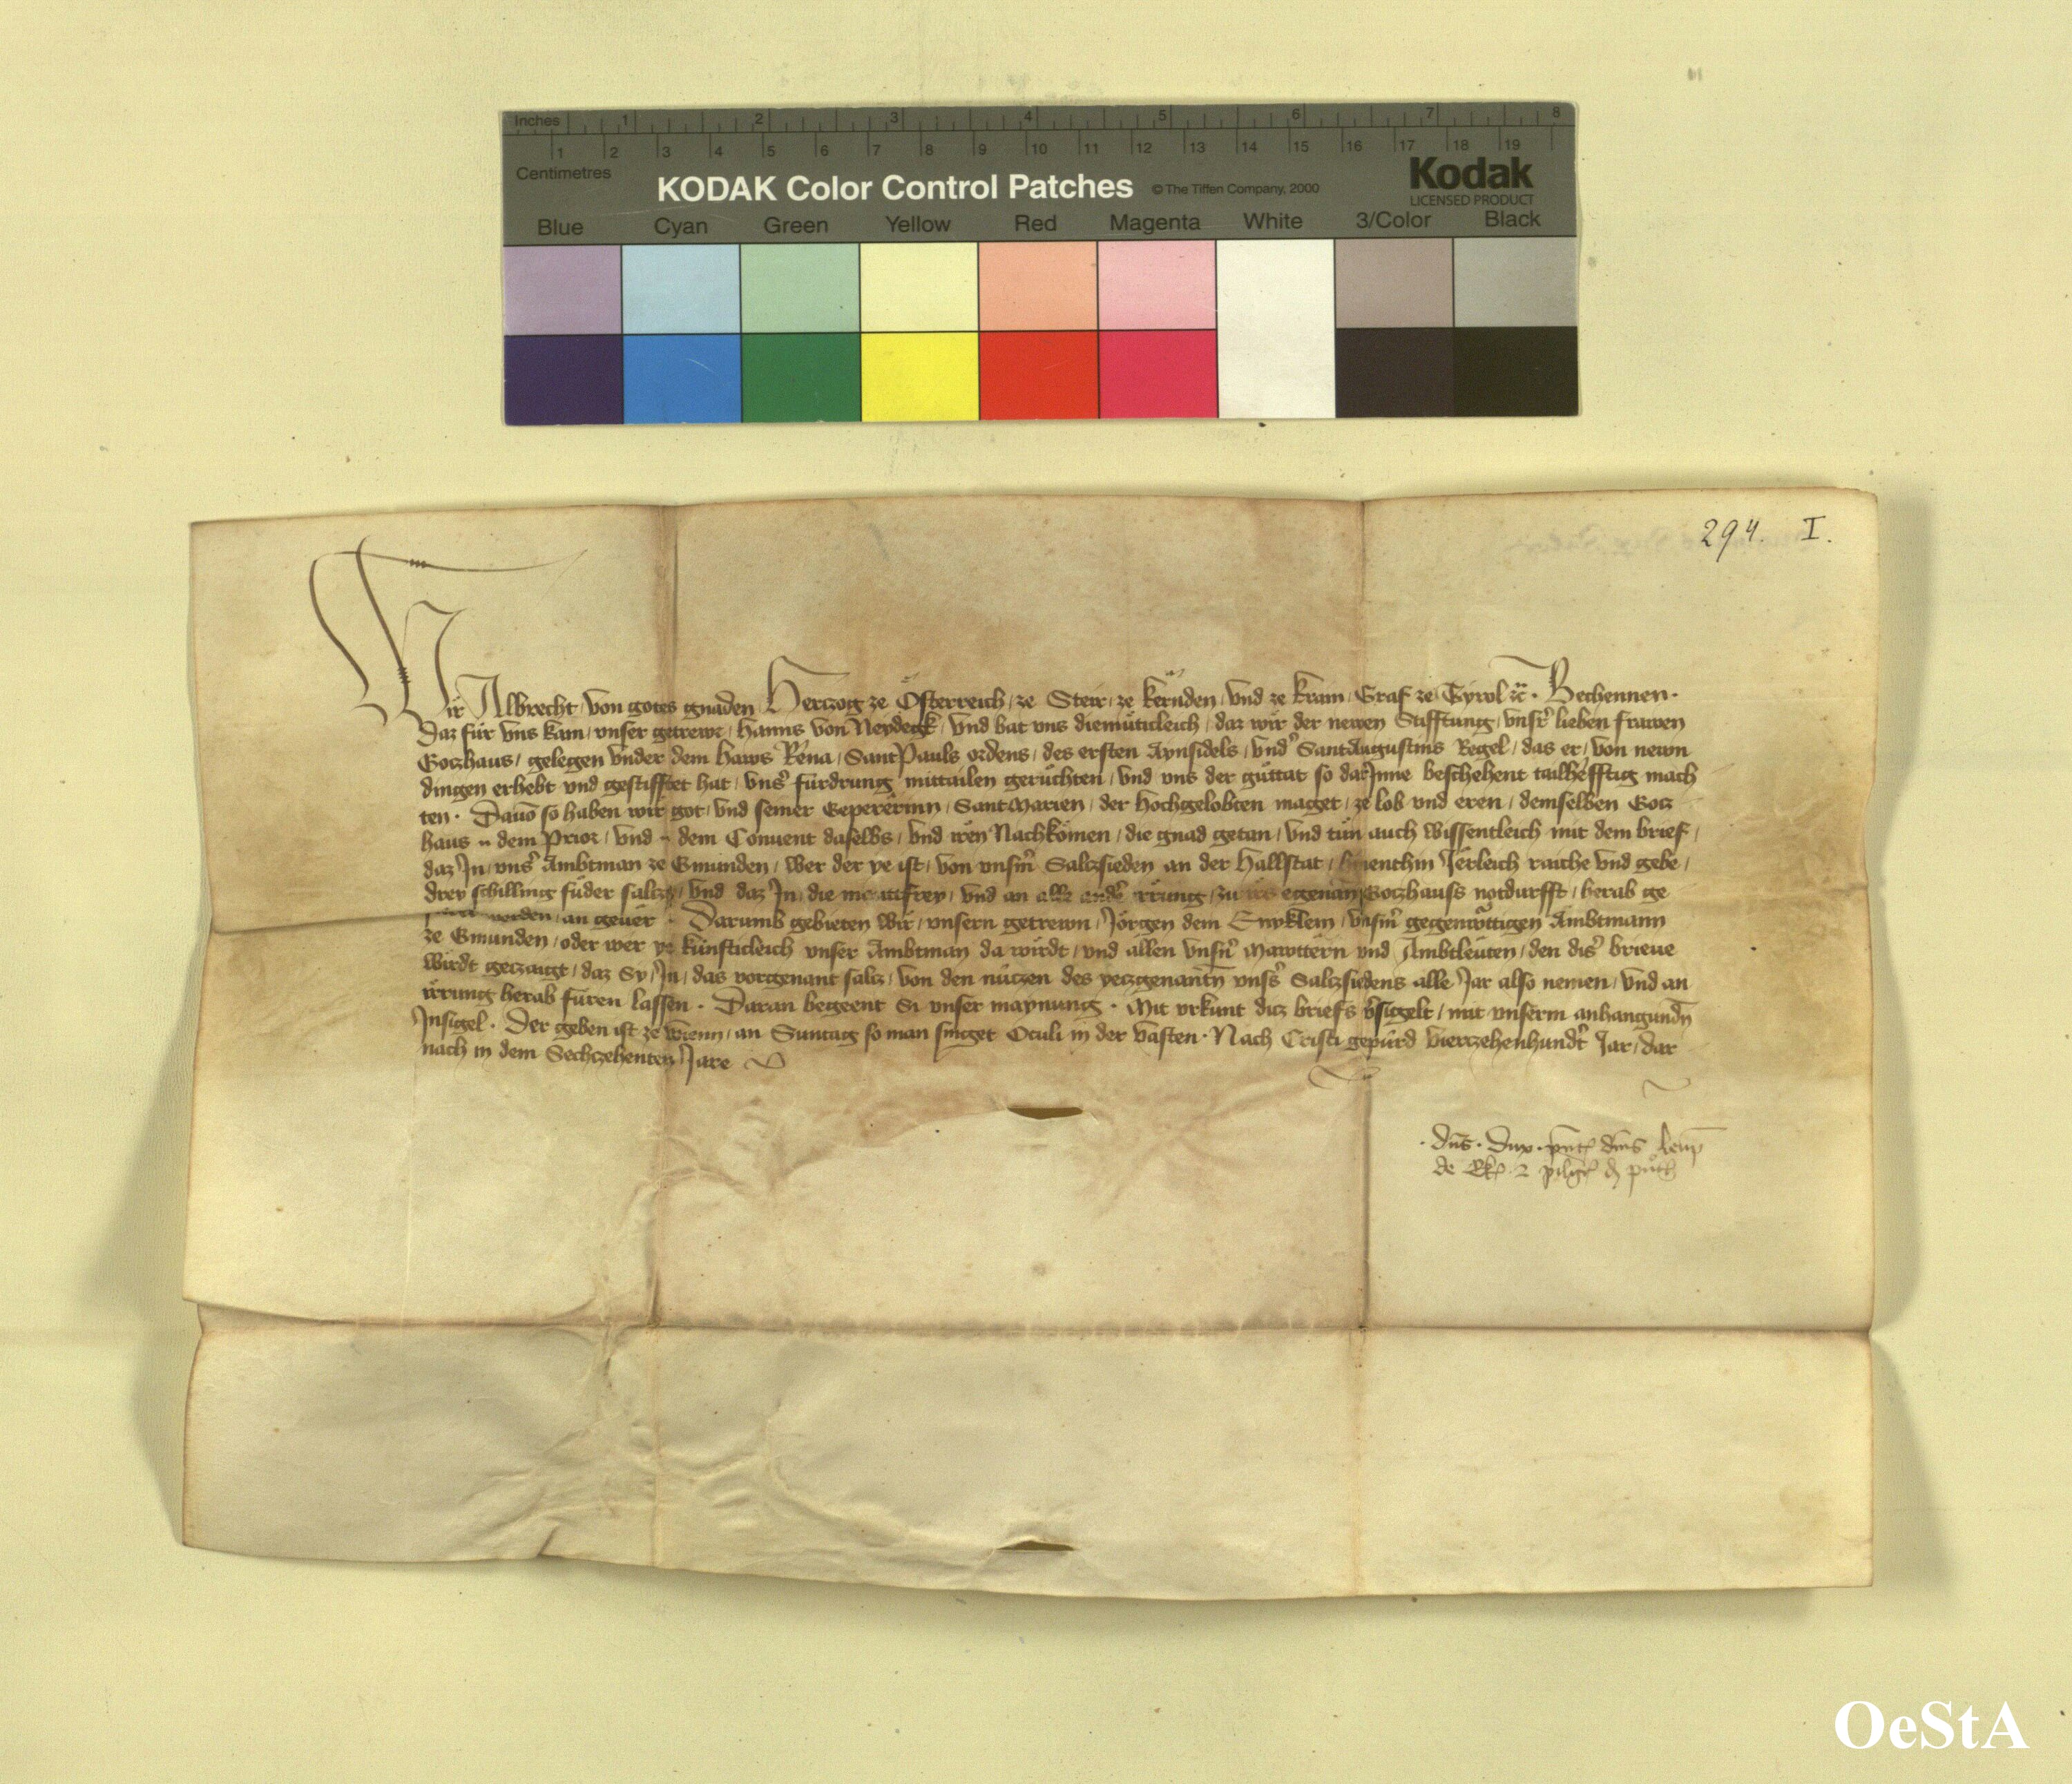 Inches 1 2 3 4 5 6 7 8
1 2 3 4 5 6 7 8 9 10 11 12 13 14 15 16 17 18 19
Centimetres
KODAK Color Control Patches © The Tiffen Company, 2000 Kodak
LICENSED PRODUCT
Blue Cyan Green Yellow Red Magenta White 3/Color Black
294. I.
Wir Albrecht von gotes gnaden Herczog ze Österreich, ze Steir, ze kërnden, vnd ze krain, Graf ze Tyrol ꝛc. Bechennen.
Daz für vns kam, vnser getrewr, Hanns von Neydegk, vnd bat vns diemüticleich, daz wir der newen Stifftung, vnsr̉ lieben frawen
Goczhaus, gelegen vnder dem Haws Rëna, Sant Pauls ordens, des ersten Aynsidels, vnd Sant Augustins Regel, das er, von newn
dingen erhebt vnd gestifftet hat, vns̉ fürdrung mittailen gerüchten, vnd vns der güttat so dar Jnne beschehent tailhefftig mach
ten. Dauō so haben wir got, vnd seiner Gepererinn, Sant Marien, der Hochgelobten maget, ze lob vnd eren, demselben Gocz
haus dem Prior, vnd dem Conuent daselbs, vnd irn̄ Nachkömen, die gnad getan, vnd tün auch wissentleich mit dem brief,
daz Jn, vns̉ Ambtman ze Gmunden, wer der ye ist, von vnsm̉ Salczsieden an der Hallstat, hinenthin Jërleich raiche vnd gebe,
drey schilling füder salcz, vnd daz Jn, die mautfrey, vnd an alle andr̉ irrung, zu irs egenan̄ Goczhauss notdurfft, herab ge
fürt werden, an geuër. Darumb gebieten wir, vnsern getrewn, Jörgen dem Enyklein, vnsm̉ gegenwöttigen Ambtmann
ze Gmunden, oder wer ye künfticleich vnser Ambtman da wirdt, vnd allen vnsn̉ Mawttern vnd Ambtleüten, den dis̉ brieue
wirdt geczaigt, daz Sy, Jn, das vorgenant salcz, von den nüczen des yeczgenantn̄ vnss̉ Salczsiedens alle Jar also nemen, vnd an
irrung herab füren lassen. Daran begeent Si vnser maynung. Mit vrkunt dicz briefs v̉sigelt, mit vnserm anhangundn̄
Jnsigel. Der geben ist ze Wienn, an Suntag so man singet Oculi in der vasten. Nach Cristi gepürd vierczehenhundr̉t Jar, dar
nach in dem Sechczehenten Jare
. dn̄s. Dux. dn̄s
de Ek
OeStA